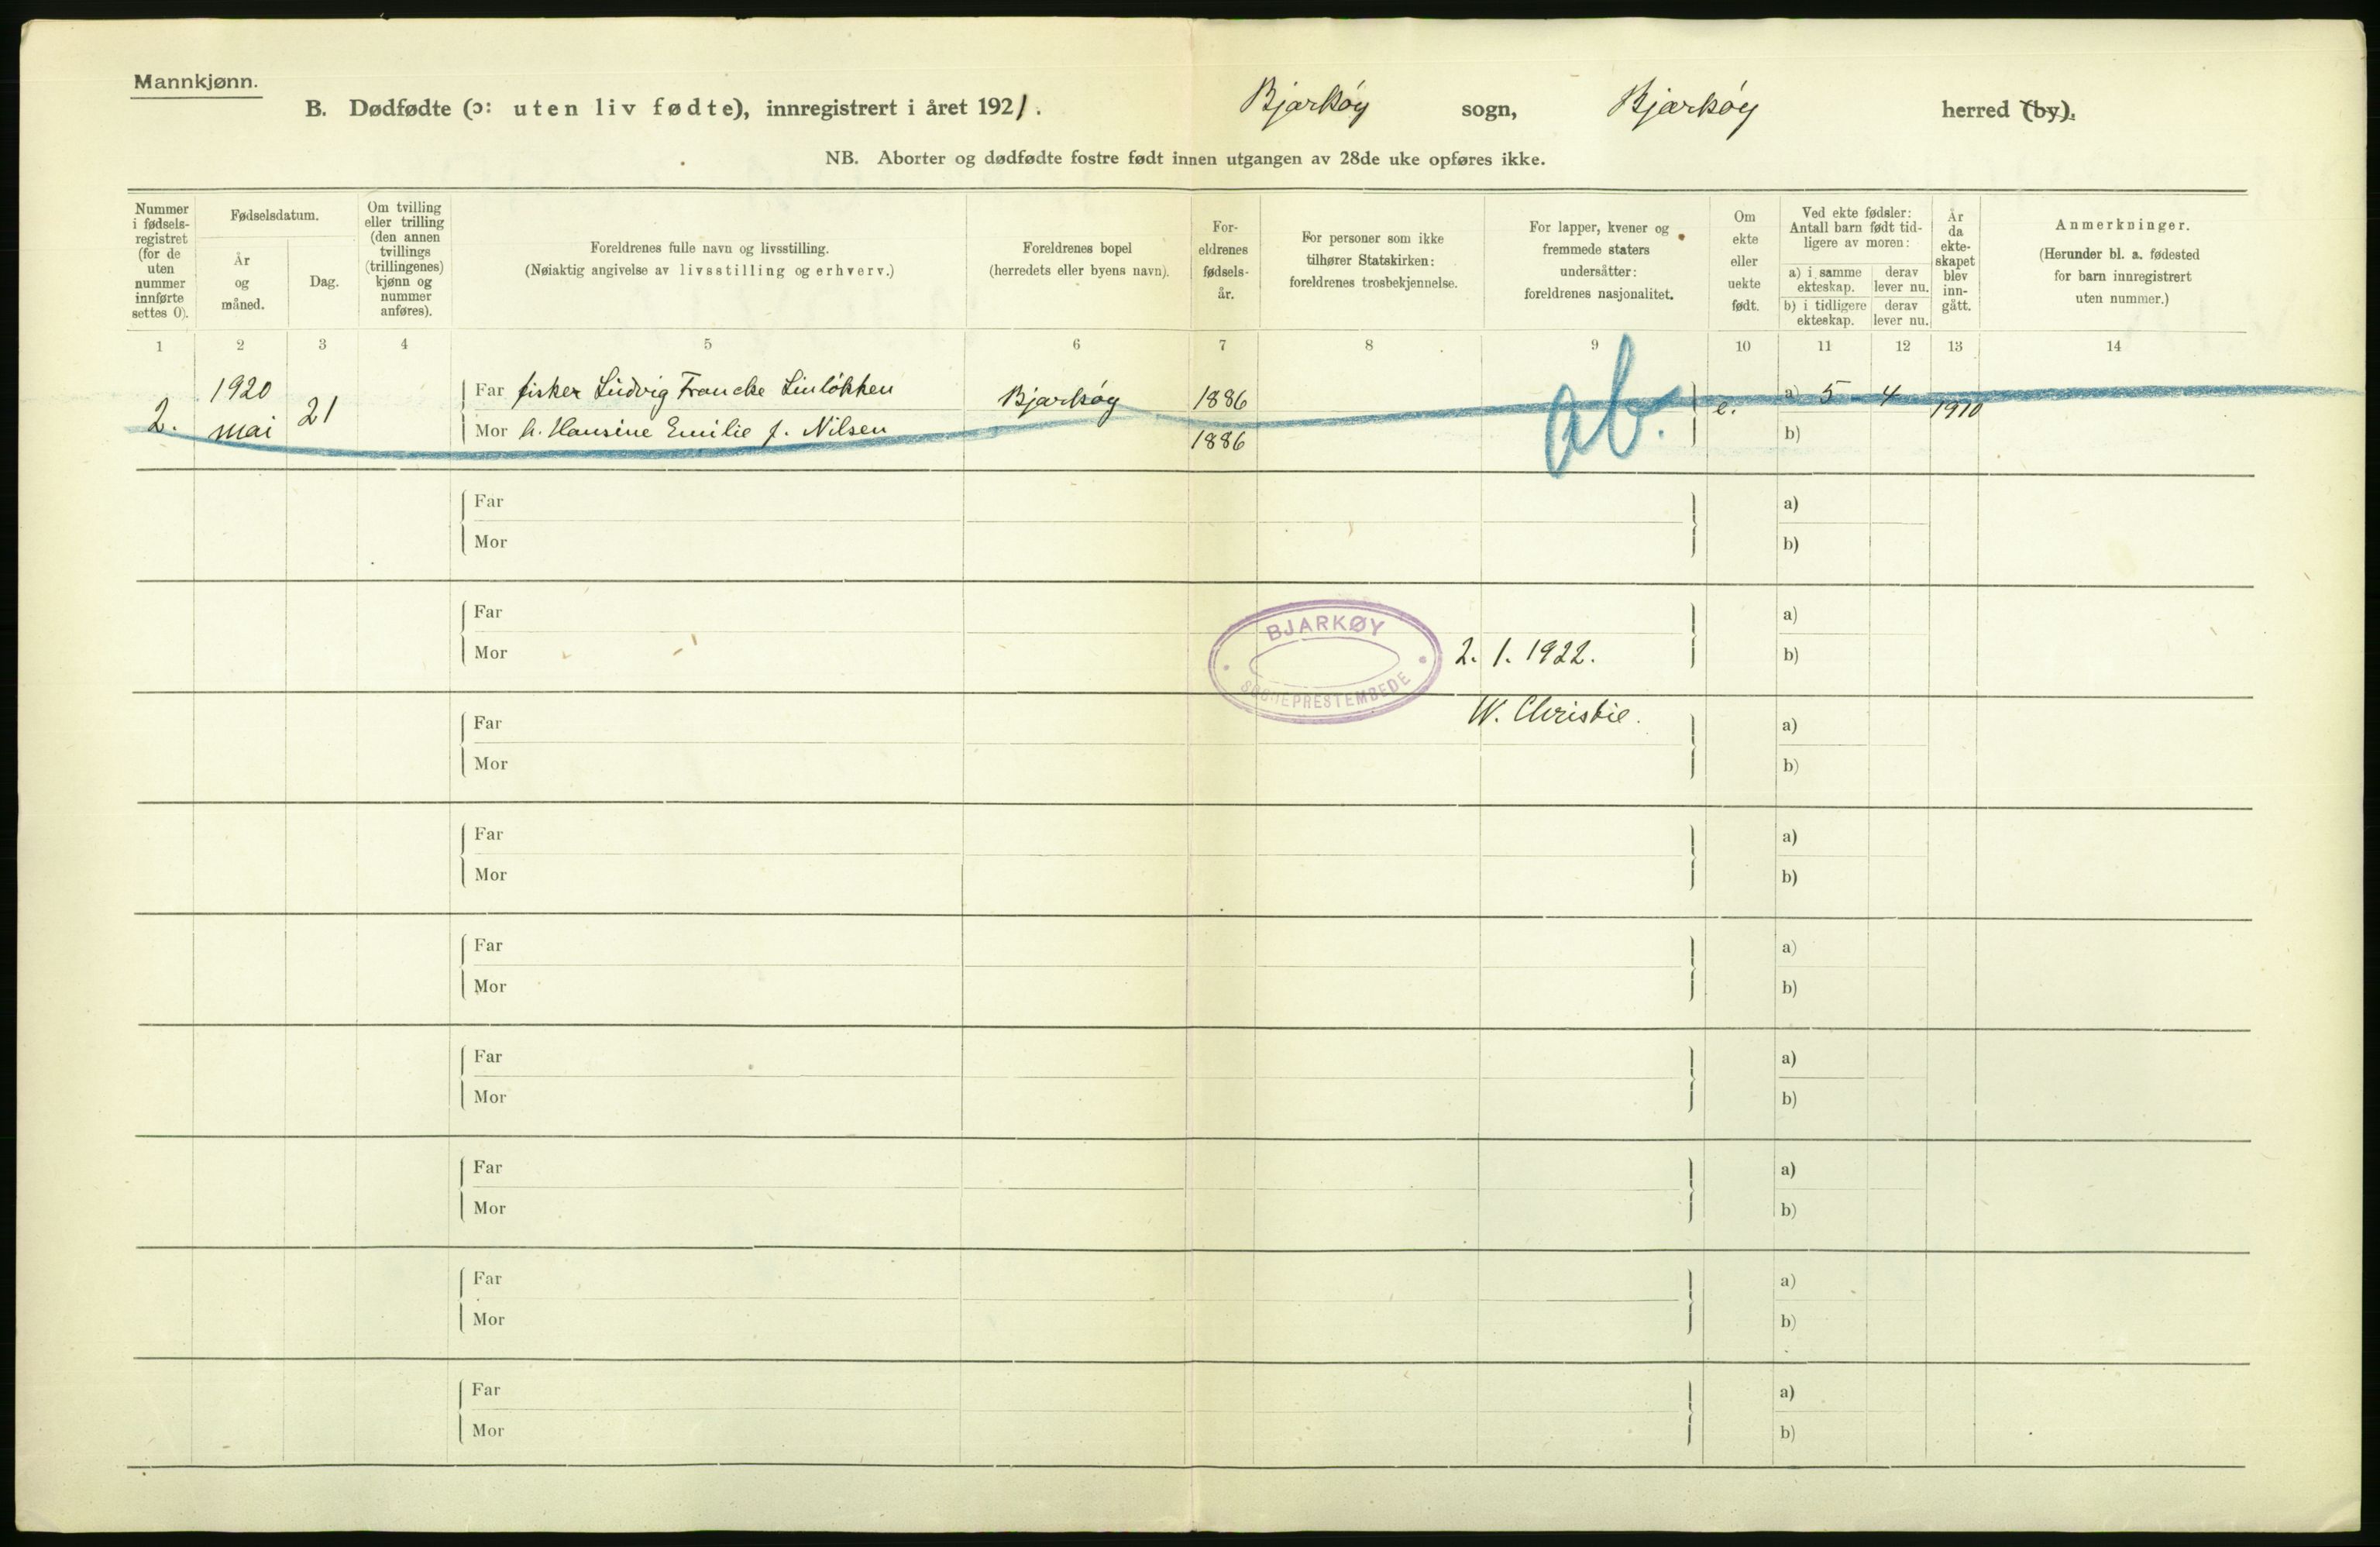 Mannkjønn.
B. Dødfødte (ɔ: uten liv fødte), innregistrert i året 1921. Bjarkøy sogn, Bjarkøy herred (by).
NB. Aborter og dødfødte fostre født innen utgangen av 28de uke opføres ikke.
Nummer i fødsels-registret (for de uten nummer innførte settes 0).
Fødselsdatum.
År og måned.
Dag.
Om tvilling eller trilling (den annen tvillings (trillingenes) kjønn og nummer anføres).
Foreldrenes fulle navn og livsstilling.
(Nøiaktig angivelse av livsstilling og erhverv.)
Foreldrenes bopel
(herredets eller byens navn).
For-eldrenes fødsels-år.
For personer som ikke tilhører Statskirken: foreldrenes trosbekjennelse.
For lapper, kvener og fremmede staters undersåtter: foreldrenes nasjonalitet.
Om ekte eller uekte født.
Ved ekte fødsler: Antall barn født tid-ligere av moren:
a) i samme ekteskap. derav lever nu.
b) i tidligere ekteskap. derav lever nu.
År da ekte-skapet blev inn-gått.
Anmerkninger.
(Herunder bl. a. fødested for barn innregistrert uten nummer.)
1 2 3 4 5 6 7 8 9 10 11 12 13 14
2. 1920 mai 21
Far fisker Ludvig Francke Linløkken Bjarkøy 1886 e. a) 5 4 1910
Mor h. Hansine Emilie f. Nilsen 1886 b)
ab.
Far a)
Mor b)
Far a)
Mor b)
BJARKØY
SOGNEPRESTEMBEDE
2. 1. 1922.
W. Christie.
Far a)
Mor b)
Far a)
Mor b)
Far a)
Mor b)
Far a)
Mor b)
Far a)
Mor b)
Far a)
Mor b)
Far a)
Mor b)